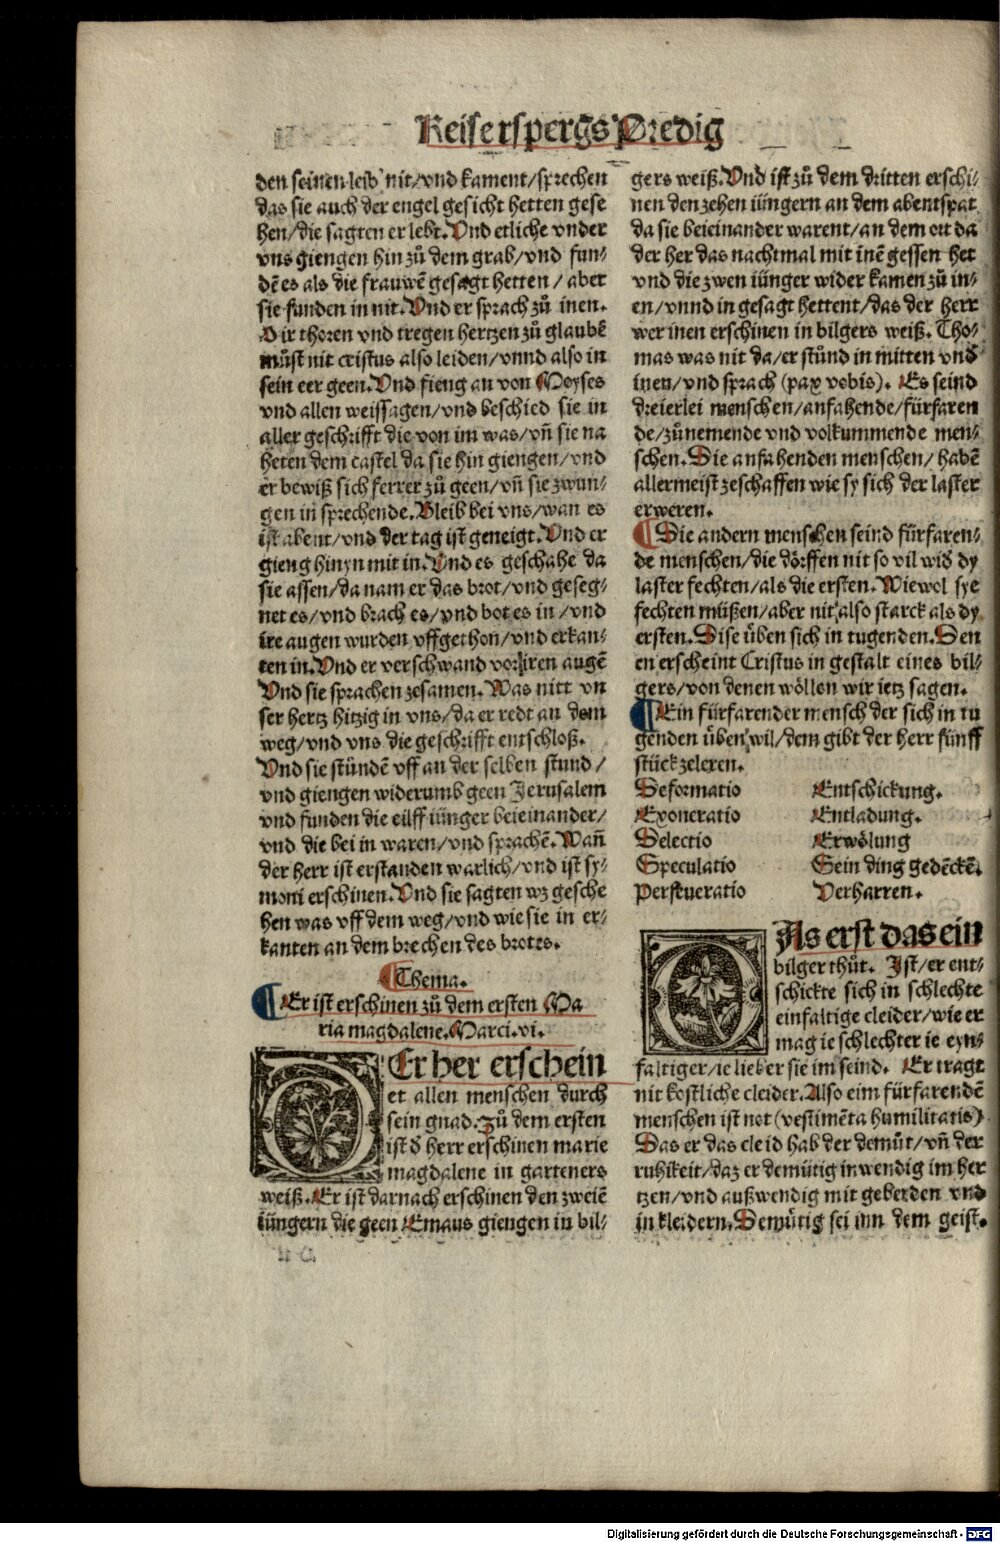 Keiserspergs Predig
den seinen leib nit/vnd kament/sprechen
das sie auch der engel gesicht hetten gese
hen/die sagten er lebt. Vnd etliche vnder
vns giengen hin zů dem grab/vnd fun⸗
dē es als die frauwē gesagt hetten/ aber
sie funden in nit. Vnd er sprach zů inen.
O ir thoren vnd tregen hertzen zů glaubē
můst nit cristus also leiden/vnnd also in
sein eer geen. Vnd fieng an von Moyses
vnd allen weissagen/vnd beschied sie in
aller geschrifft die von im was/vñ sie na
heten dem castel da sie hin giengen/vnd
er bewiß sich ferrer zů geen/vñ sie zwun⸗
gen in sprechende. Bleib bei vns/wan es
ist abent/vnd der tag ist geneigt. Vnd er
gieng hinyn mit in. Vnd es geschahe da
sie assen/da nam er das brot/vnd geseg⸗
net es/vnd brach es/vnd bot es in/vnd
ire augen wurden vffgethon/vnd erkan⸗
ten in. Vnd er verschwand vor iren augē
Vnd sie sprachen zesamen. Was nitt vn
ser hertz hitzig in vns/da er redt an dem
weg/vnd vns die geschrifft entschloß.
Vnd sie stůndē vff an der selben stund/
vnd giengen widerumb geen Jerusalem
vnd funden die eilff iünger beieinander/
vnd die bei in waren/vnd sprachē. Wañ
der herr ist erstanden warlich/vnd ist sy⸗
moni erschinen. Vnd sie sagten wz gesche
hen was vff dem weg/vnd wie sie in er⸗
kanten an dem brechen des brotes.
¶Thema.
¶Er ist erschinen zů dem ersten Ma
ria magdalene. Marci. vi.
DEr her erschein
et allen menschen durch
sein gnad. Zů dem ersten
ist d̄ herr erschinen marie
magdalene in garteners
weiß. Er ist darnach erschinen den zweiē
iüngern die geen Emaus giengen in bil⸗
gers weiß. Vnd ist zů dem dritten erschi⸗
nen den zehen iüngern an dem abentspat
da sie beieinander warent/an dem ort da
der her das nachtmal mit inē gessen het
vnd die zwen iünger wider kamen zů in⸗
en/vnnd in gesagt hettent/das der herr
wer inen erschinen in bilgers weiß. Tho⸗
mas was nit da/er stůnd in mitten vnd̄
inen/vnd sprach (pax vobis). Es seind
dreierlei menschen/anfahende/fürfaren
de/zůnemende vnd volkummende men⸗
schen. Die anfahenden menschen/ habē
allermeist zeschaffen wie sy sich der laster
erweren.
¶Die andern menschen seind fürfaren⸗
de menschen/die dörffen nit so vil wid̄ dy
laster fechten/als die ersten. Wiewol sye
fechten müßen/aber nit also starck als dy
ersten. Dise üben sich in tugenden. Den
en erscheint Cristus in gestalt eines bil⸗
gers/von denen wöllen wir ietz sagen.
¶Ein fürfarender mensch der sich in tu
genden üben wil/dem gibt der herr fünff
stück zeleren.
Deformatio Entschickung.
Exoneratio Entladung.
Delectio Erwölung
Speculatio Sein ding gedēckē.
Perseueratio Verharren.
DAs erst das ein
bilger thůt. Ist/er ent⸗
schickte sich in schlechte
einfaltige cleider/wie er
mag ie schlechter ie eyn⸗
faltiger/ie lieber sie im seind. Er tragt
nit kostliche cleider. Also eim fürfarendē
menschen ist not (vestimēta humilitatis)
Das er das cleid hab der demůt/vñ der
ruhikeit/daz er demütig inwendig im her
tzen/vnd außwendig mit geberden vnd
in kleidern. Demütig sei inn dem geist.
Digitalisierung gefördert durch die Deutsche Forschungsgemeinschaft - DFG